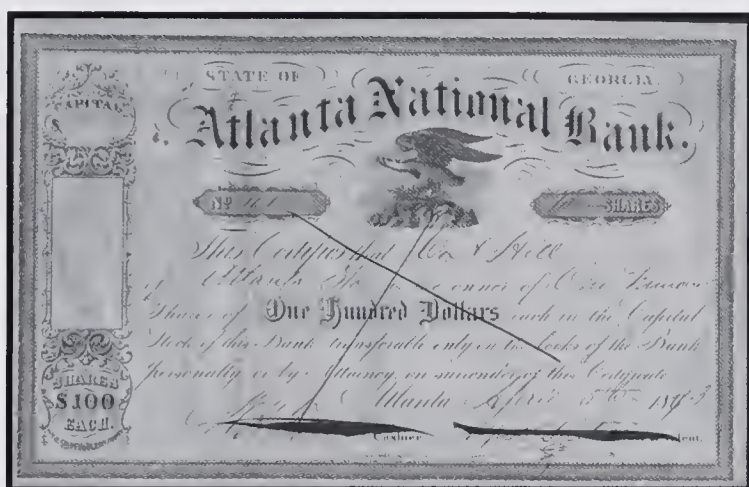 STATE OF GEORGIA
CAPITAL
$
Atlanta National Bank.
No SHARES
This Certifies that Cox & Hill
of Atlanta Ga owner of One
Shares of One Hundred Dollars each in the Capital
Stock of this Bank transferable only on the books of the Bank
Personally or by Attorney on surrender of this Certificate
Atlanta April 18
SHARES
$100
EACH.
Cashier